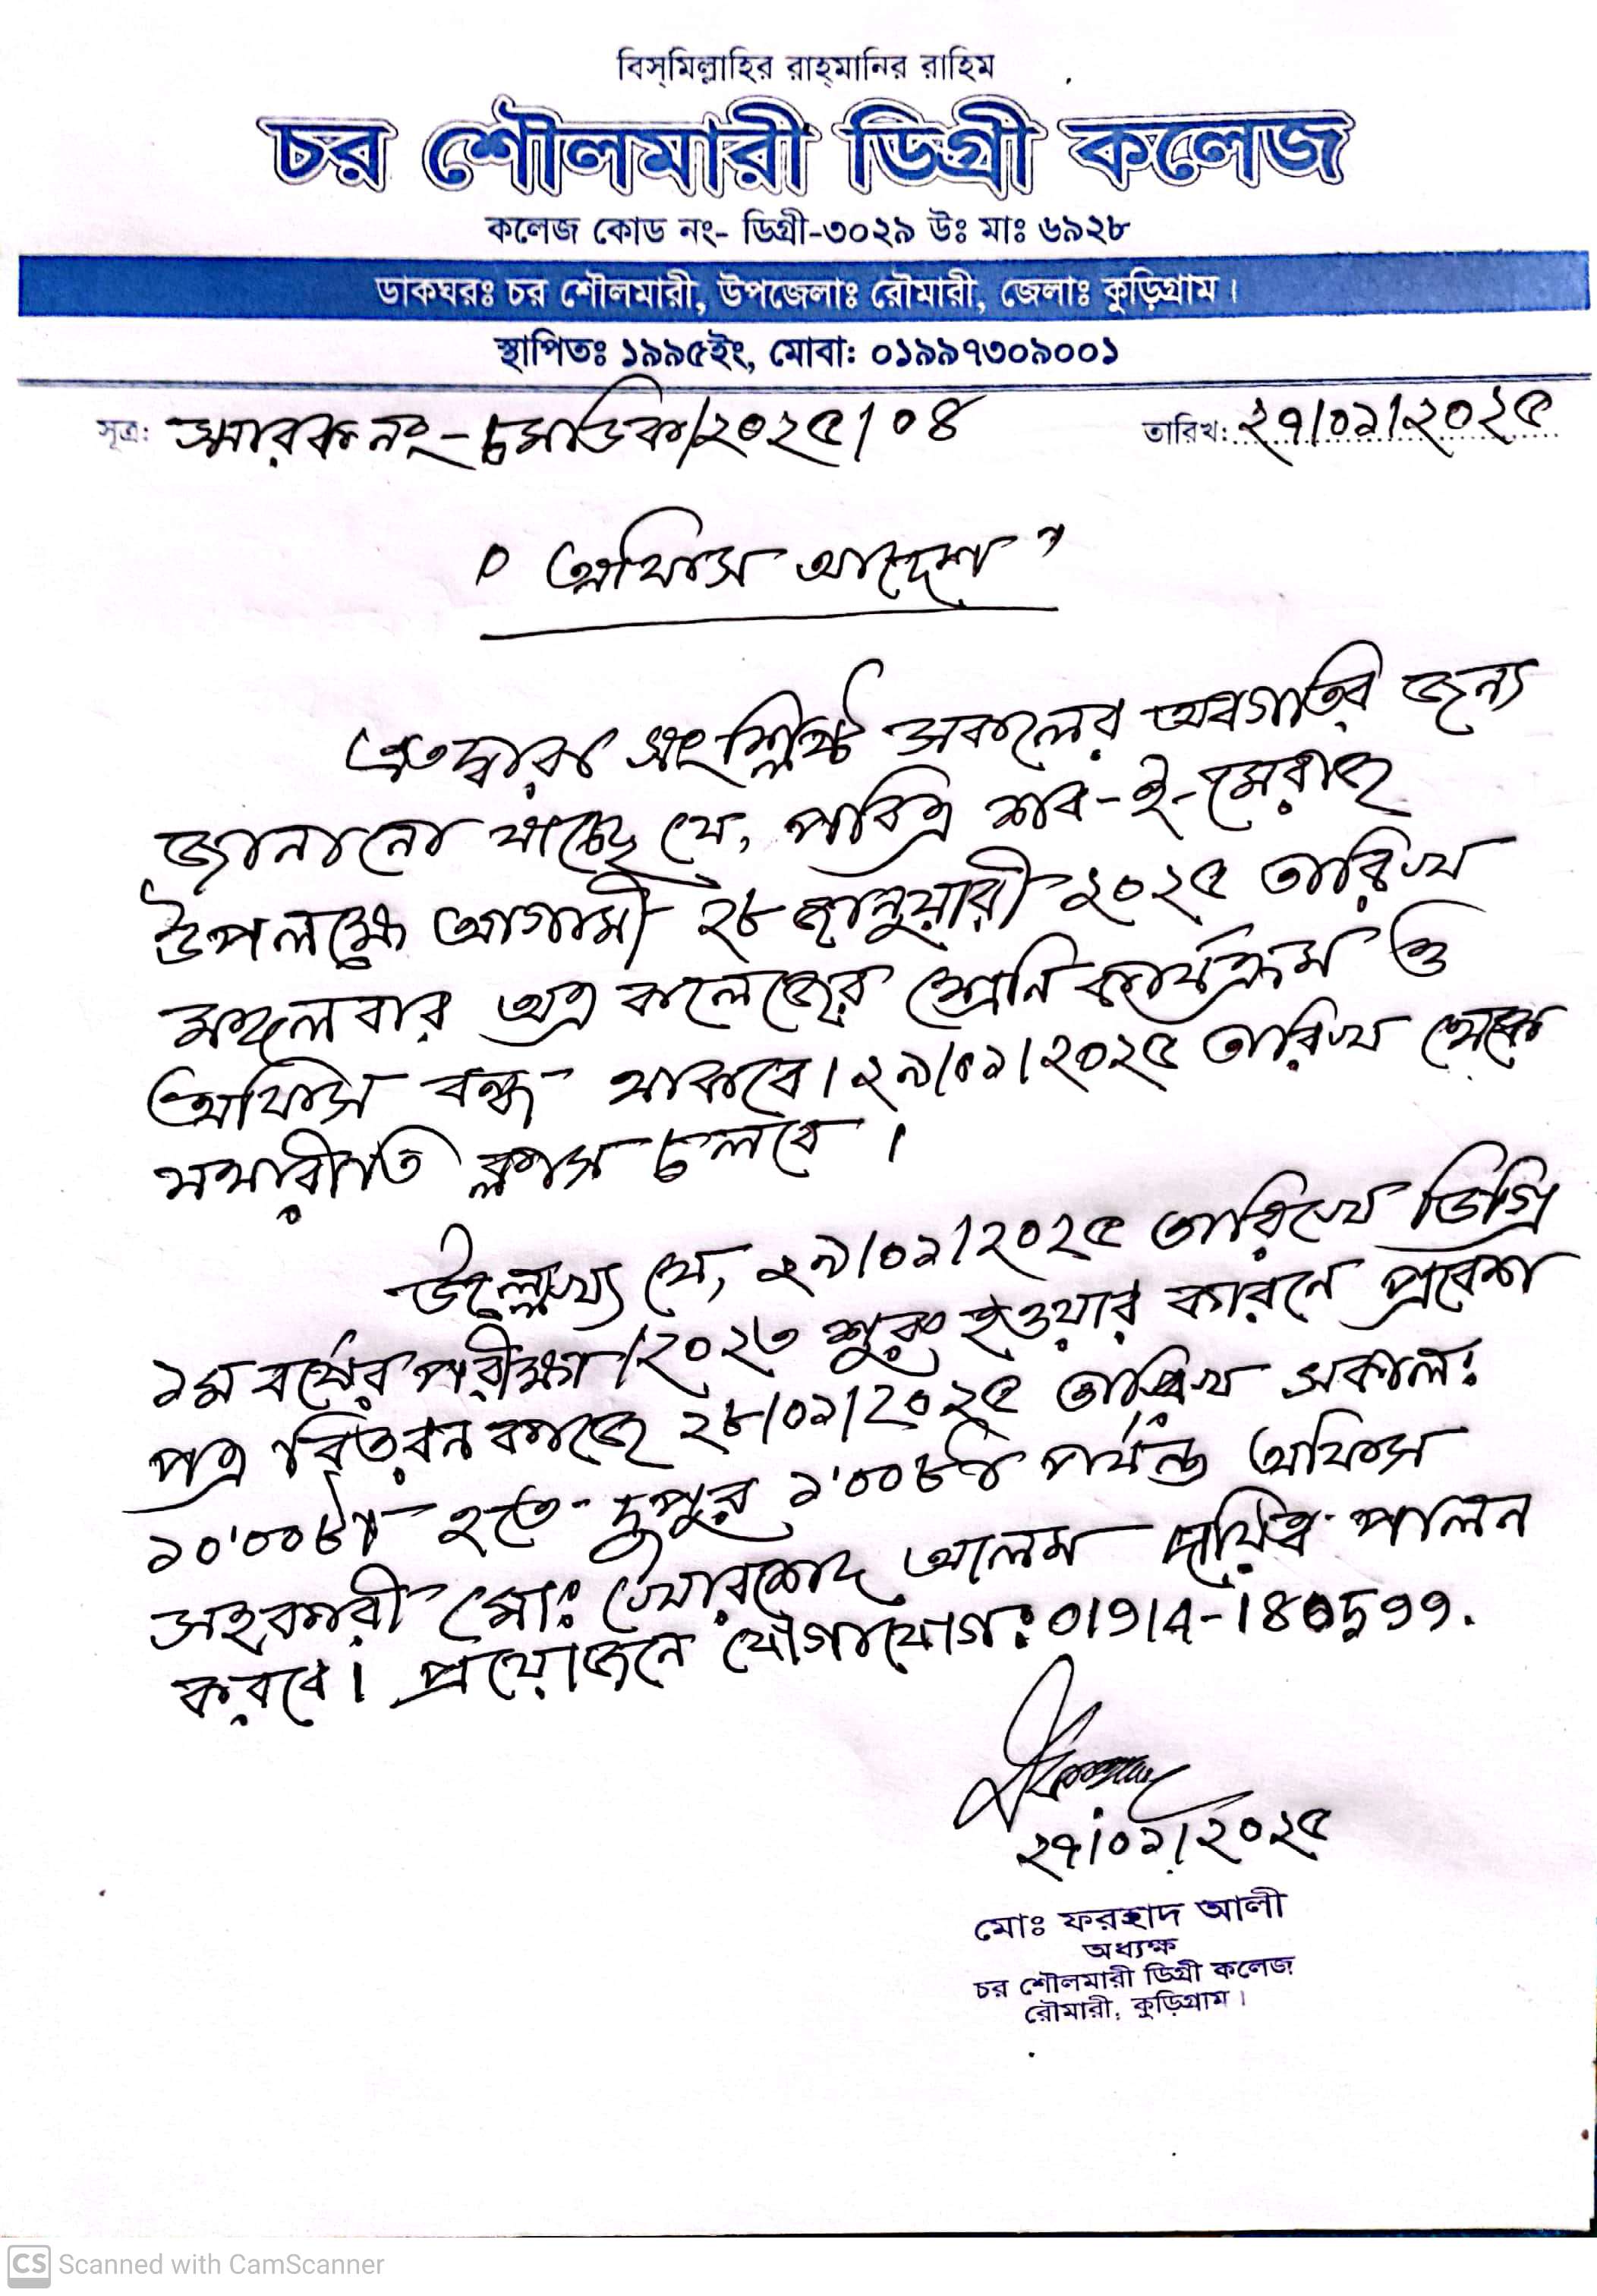 বিস্‌মিল্লাহির রাহ্‌মানির রাহিম
চর শৌলমারী ডিগ্রী কলেজ
কলেজ কোড নং- ডিগ্রী-৩০২৯ উঃ মাঃ ৬৯২৮
ডাকঘরঃ চর শৌলমারী, উপজেলাঃ রৌমারী, জেলাঃ কুড়িগ্রাম।
স্থাপিতঃ ১৯৯৫ইং, মোবা: ০১৯৯৭৩০৯০০১
সূত্র: স্মারক নং-চশৌডিক/২০২৫/০৪ তারিখ: ২৭/০১/২০২৫
" অফিস আদেশ "
এতদ্বারা সংশ্লিষ্ট সকলের অবগতির জন্য
জানানো যাচ্ছে যে, পবিত্র শব-ই-মেরাজ
উপলক্ষে আগামী ২৮ জানুয়ারী ২০২৫ তারিখ
মঙ্গলবার অত্র কলেজের শ্রেনি কার্যক্রম ও
অফিস বন্ধ থাকবে। ২৯/০১/২০২৫ তারিখ থেকে
যথারীতি ক্লাস চলবে।
উল্লেখ্য যে, ২৯/০১/২০২৫ তারিখে ডিগ্রি
১ম বর্ষের পরীক্ষা/২০২৩ শুরু হওয়ার কারনে প্রবেশ
পত্র বিতরন কাজে ২৮/০১/২০২৫ তারিখ সকাল:
১০'০০টা হতে দুপুর ১'০০টা পর্যন্ত অফিস
সহকারী মোঃ খোরশেদ আলম দায়িত্ব পালন
করবে। প্রয়োজনে যোগাযোগ:
২৭/০১/২০২৫
মোঃ ফরহাদ আলী
অধ্যক্ষ
চর শৌলমারী ডিগ্রী কলেজ
রৌমারী, কুড়িগ্রাম।
CS Scanned with CamScanner